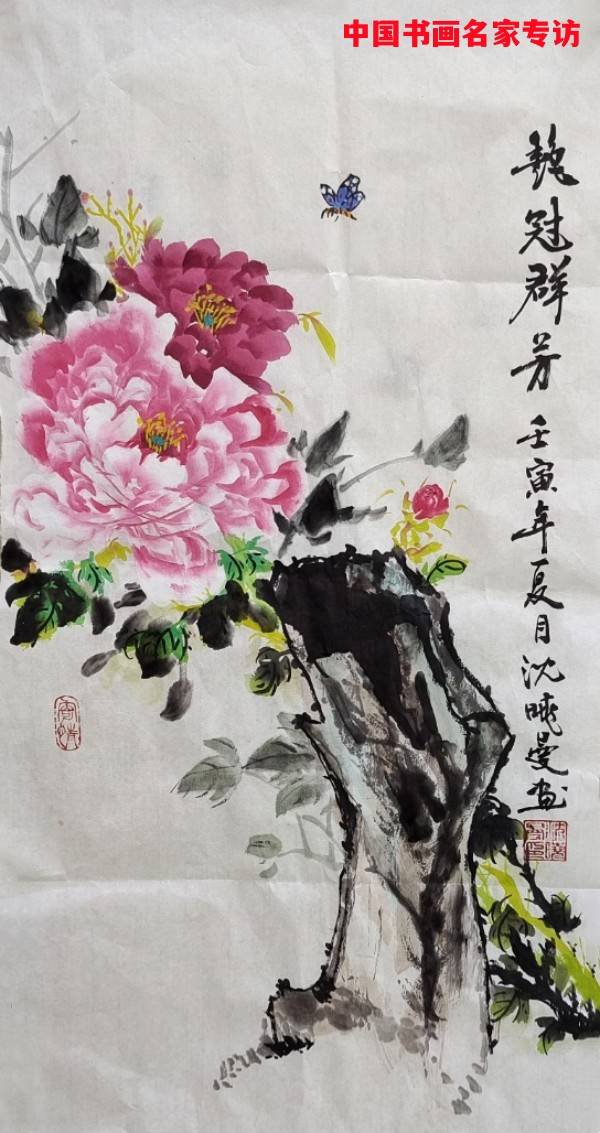 中国书画名家专访
艷冠群芳
壬寅年夏月沈晓曼画